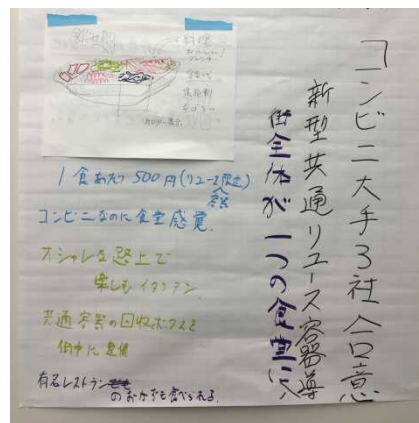 コンビニ大手3社合意
新型共通リユース容器導入
街全体が一つの食堂に
料理
カロリー表示
1食あたり500円(リユース限定)
容器
コンビニなのに食堂感覚
オシャレな路上で
楽しむイタリアン
共通容器の回収ボックスを
街中に整備
有名レストラン
のおかずも食べられる